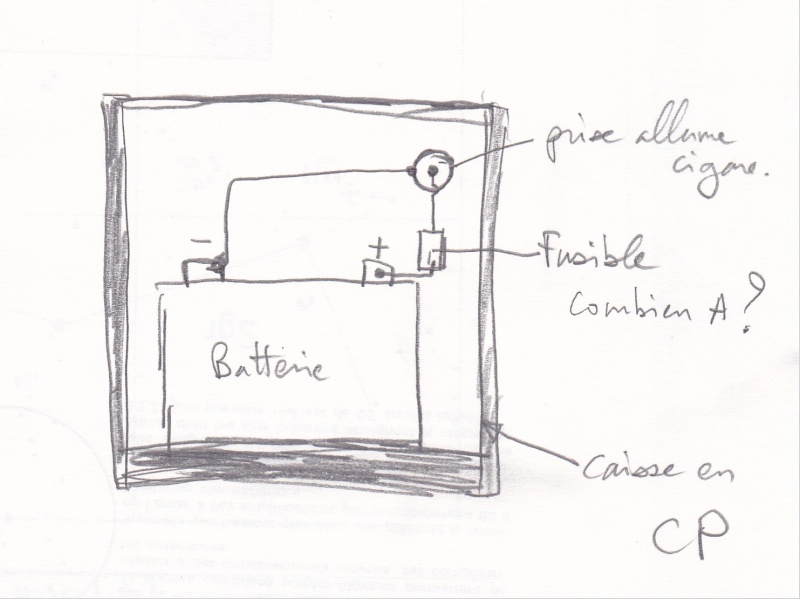 prise allume
cigare.
- +
Fusible
Combien A?
Batterie
Caisse en
CP